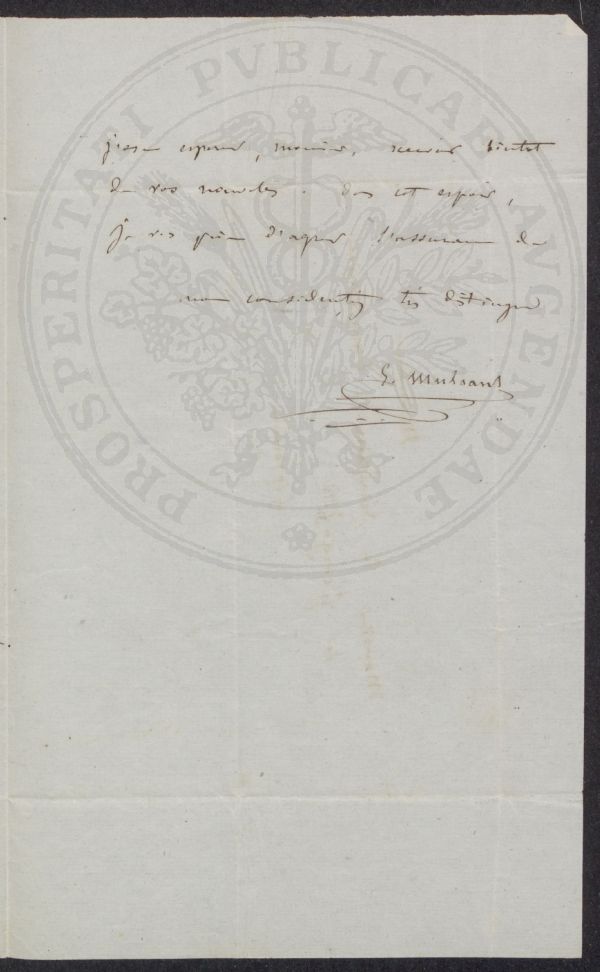 PROSPERITATI PVBLICAE AVGENDAE
j'ose espérer, monsieur, recevoir bientot
de vos nouvelles. dans cet espoir,
je vs prie d'agréer l'assurance de
mon considération très distinguée
E. Mulsant